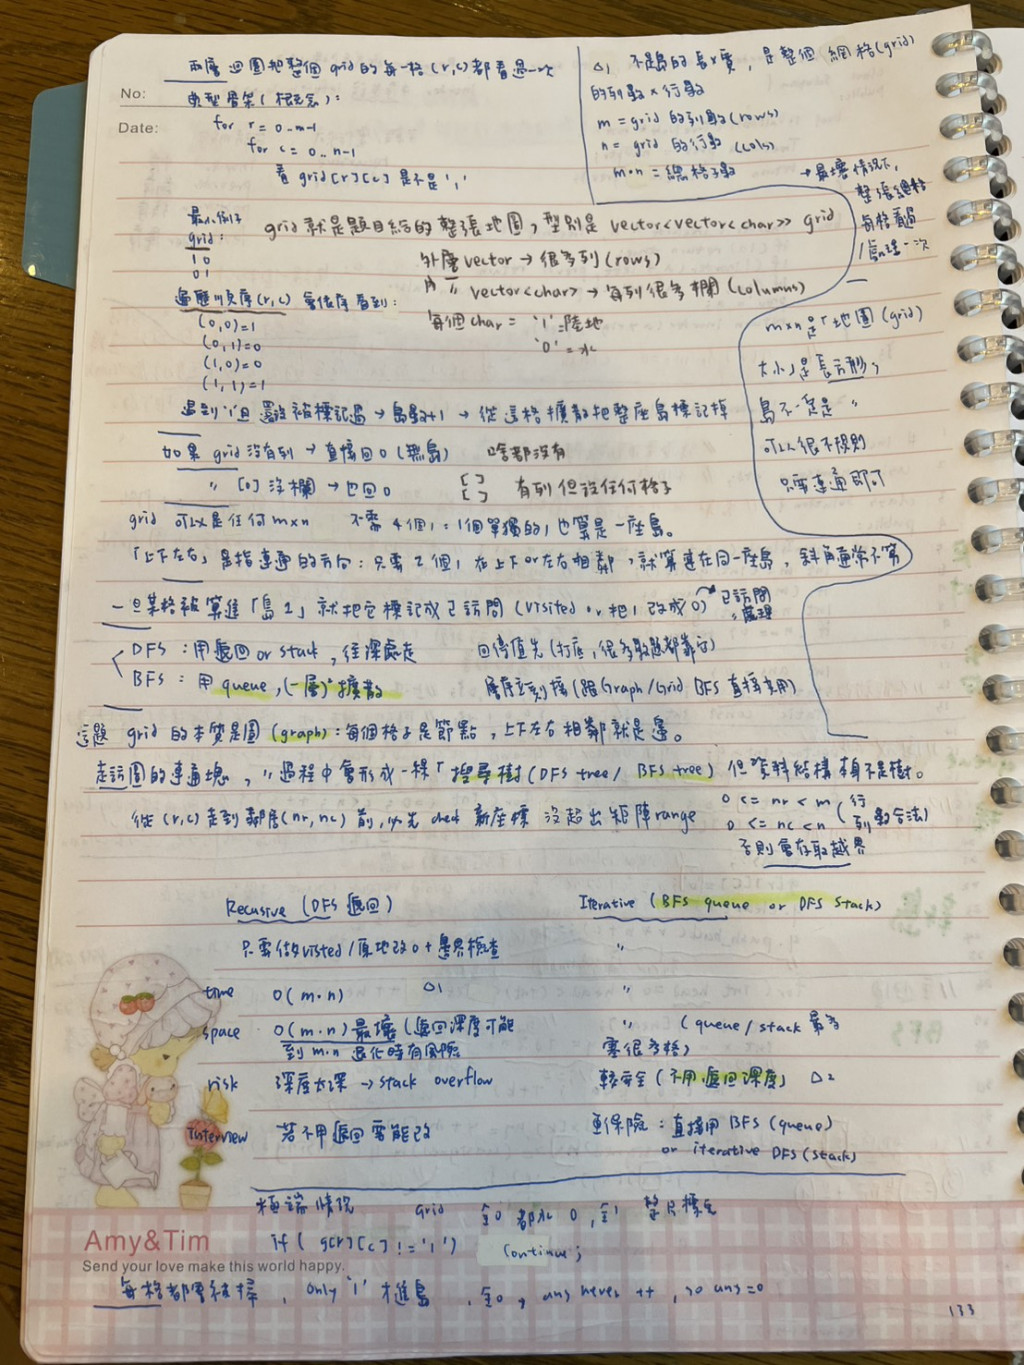 兩層迴圈把整個 grid 的每一格 (r,c) 都看過一次
No:
典型骨架 (概念):
Date:
for r = 0..m-1
for c = 0..n-1
看 grid[r][c] 是不是 '1'
△1 不是島的長×寬, 是整個網格(grid)
的列數×行數
m = grid 的列數(rows)
n = grid 的行數 (cols)
m·n = 總格子數
→ 最壞情況下,
整張網格
每格看過
/處理一次
最小例子
grid:
1 0
0 1
grid 就是題目給的整張地圖, 型別是 vector<vector<char>> grid
外層 vector → 很多列 (rows)
內 〃 vector<char> → 每列很多欄 (columns)
每個 char = '1' = 陸地
'0' = 水
遍歷順序(r,c) 會依序看到:
(0,0)=1
(0,1)=0
(1,0)=0
(1,1)=1
m×n 是「地圖 (grid)
大小」是長方形,
島不一定是 〃
可以很不規則
只要連通即可
遇到 '1' 且還沒被標記過 → 島數+1 → 從這格擴散把整座島標記掉
如果 grid 沒有列 → 直接回 0 (無島) 啥都沒有
〃 [0] 沒欄 → 也回 0 [ ] 有列但沒任何格子
[ ]
grid 可以是任何 m×n 不需 4 個 1 = 1個單獨的 1 也算是一座島。
「上下左右」是指連通的方向: 只要 2 個 1 在上下 or 左右相鄰, 就算連在同一座島, 斜角通常不算
一旦某格被算進「島 1」就把它標記成已訪問 (visited or 把 1 改成 0) → 已訪問
〃 處理
DFS: 用遞迴 or stack, 往深處走
BFS: 用 queue, (一層)° 擴散
層序 (跟 Graph/Grid BFS 直接共用)
這題 grid 的本質是圖 (graph): 每個格子是節點, 上下左右相鄰就是邊。
走訪圖的連通塊, 〃 過程中會形成一棵「搜尋樹 (DFS tree / BFS tree) 但資料結構本身不是樹。
從 (r,c) 走到鄰居 (nr, nc) 前, 必先 check 新座標沒超出矩陣 range
0 <= nr < m (行
0 <= nc < n 列數合法)
否則會存取越界
Recusive (DFS 遞迴) Iterative (BFS queue or DFS Stack)
只需做 visted / 原地改 0 + 邊界檢查 〃
time O(m·n) △1 〃
space O(m·n) 最壞 (遞迴深度可能 〃 (queue / stack 最多
到 m·n 退化時有風險 塞很多格)
risk 深度太深 → stack overflow 較安全 (不用遞迴深度) △2
Interview 若不用遞迴要能改 更保險: 直接用 BFS (queue)
or iterative DFS (stack)
極端情況 Grid 全0 都水 0, 全1 整片標完
if ( g[r][c] != '1')
continue;
Amy&Tim
Send your love make this world happy.
每格都會被掃, only '1' 才進島, 全0, ans never ++, so ans = 0
133